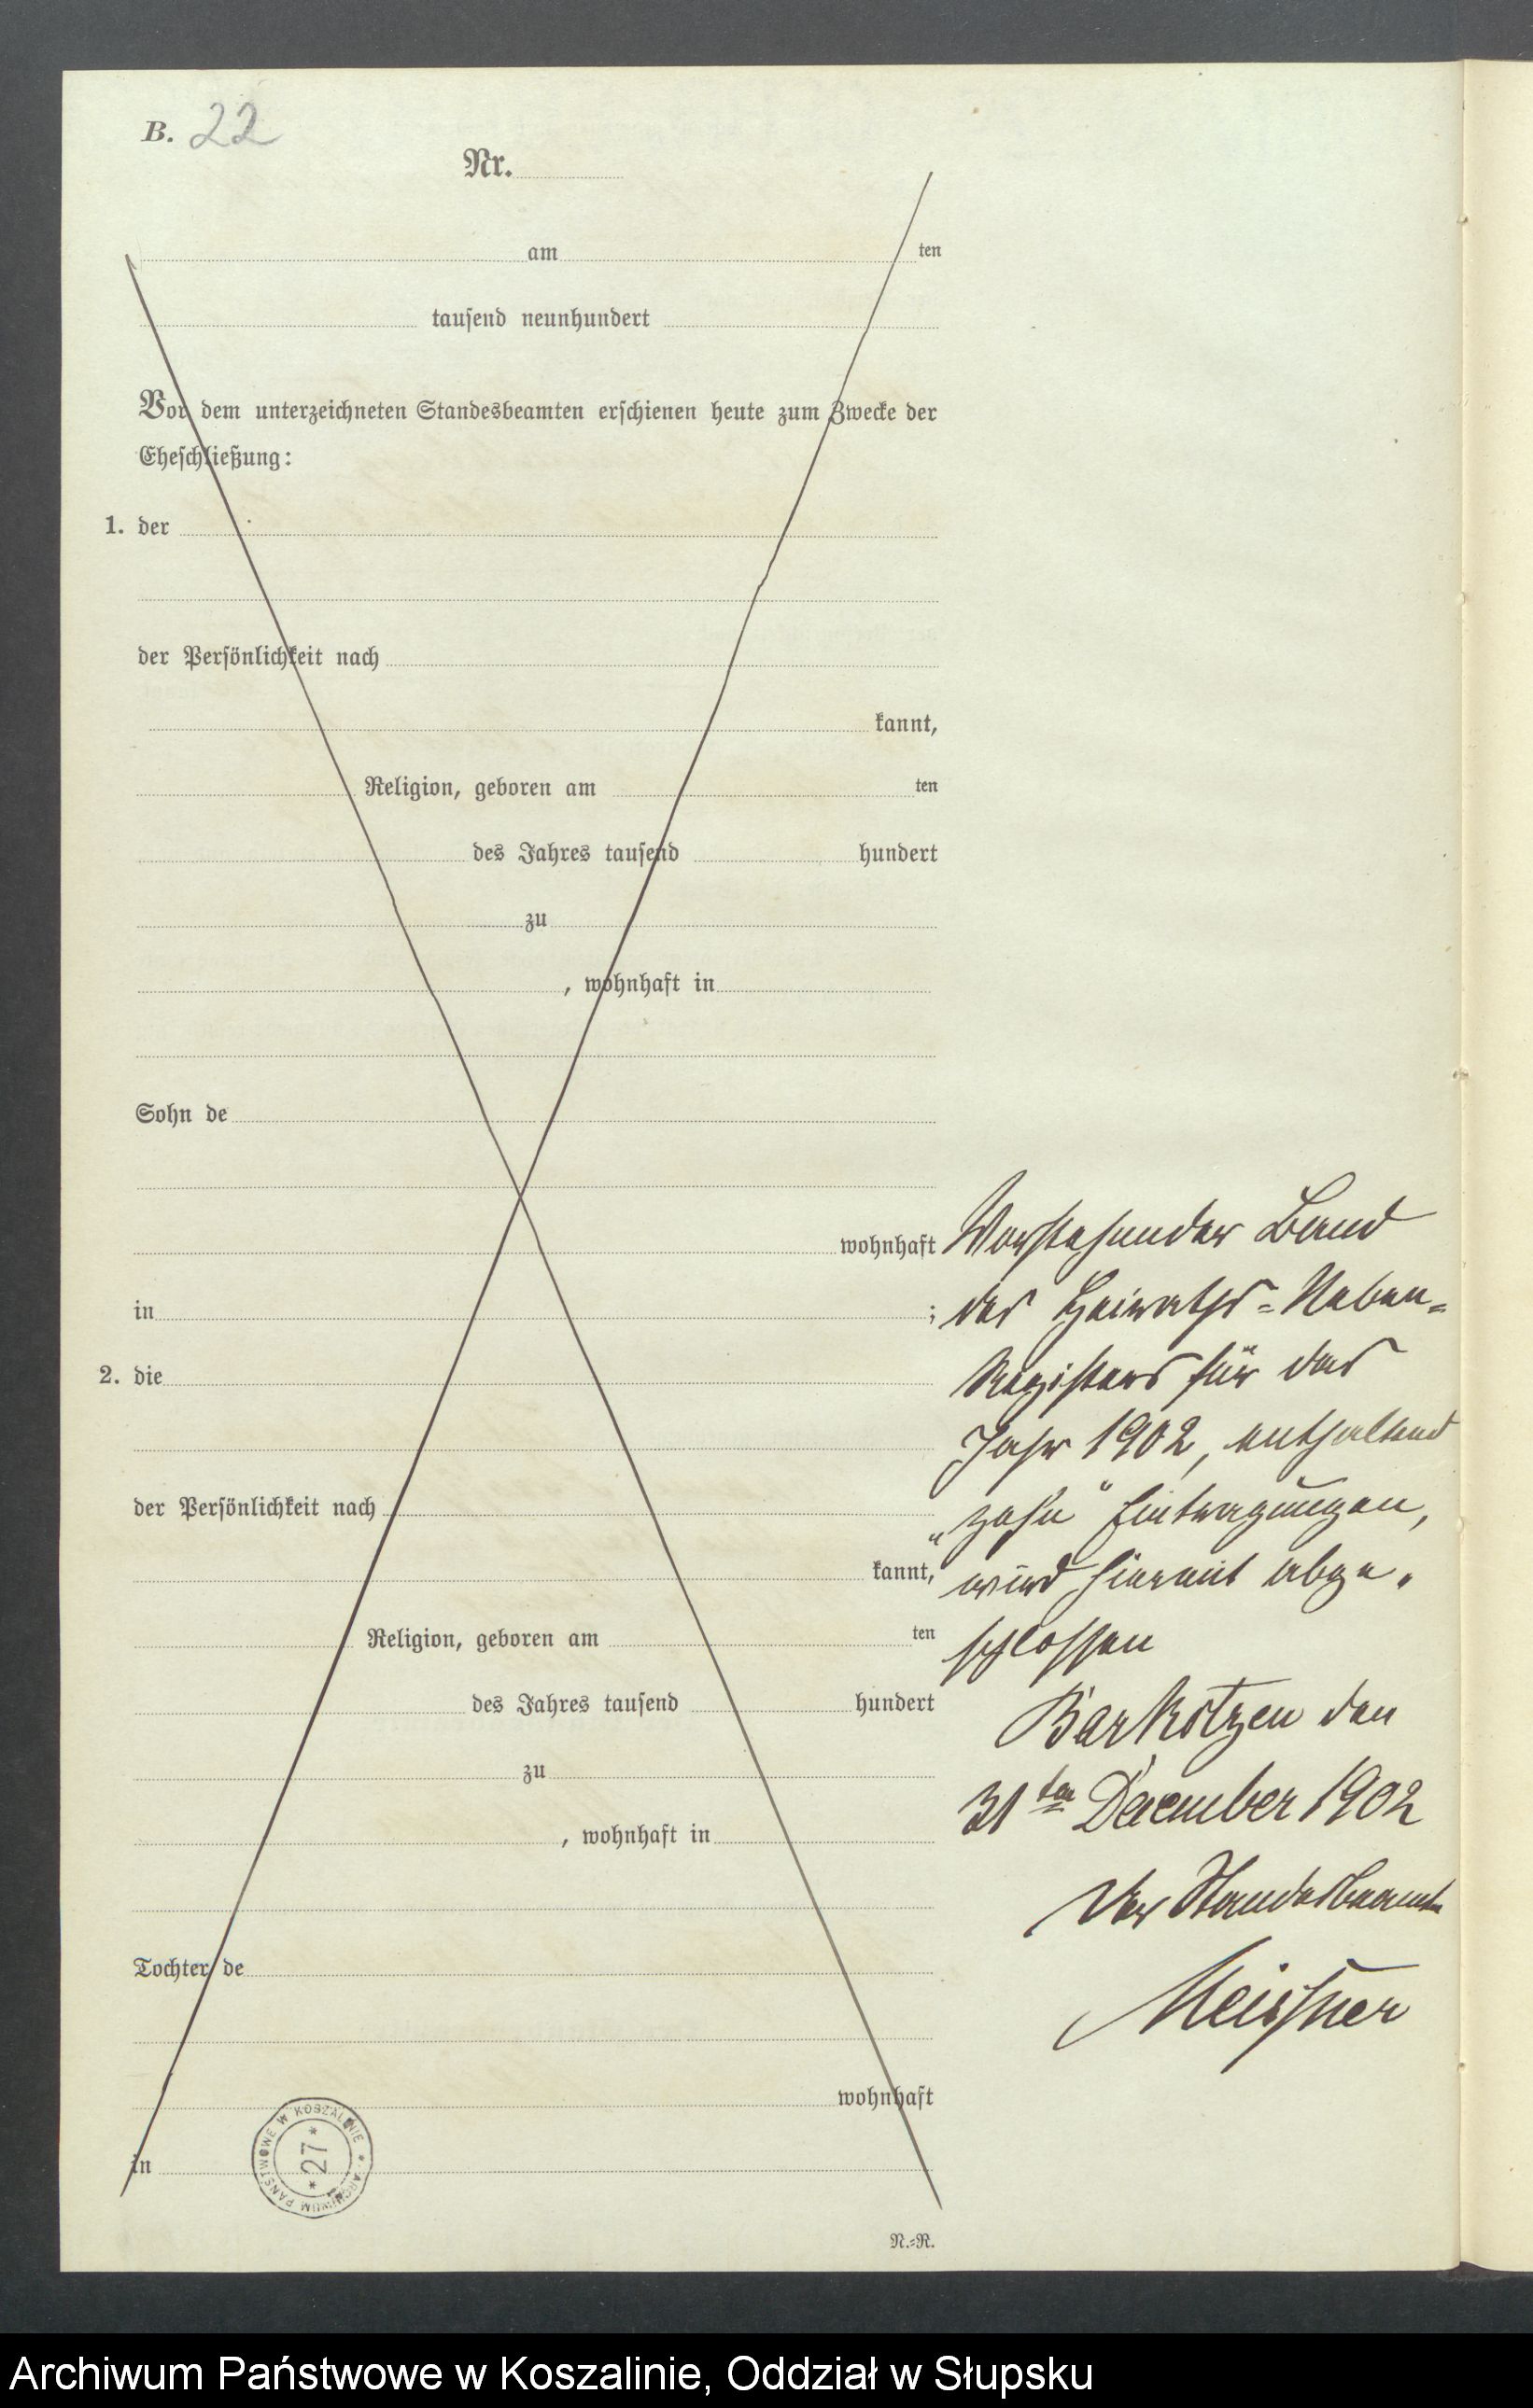 B. 22
Nr.
am ten
tausend neunhundert
Vor dem unterzeichneten Standesbeamten erschienen heute zum Zwecke der
Eheschließung:
1. der
der Persönlichkeit nach
kannt,
Religion, geboren am ten
des Jahres tausend hundert
zu
, wohnhaft in
Sohn de
wohnhaft
in ;
2. die
der Persönlichkeit nach
kannt,
Religion, geboren am ten
des Jahres tausend hundert
zu
, wohnhaft in
Tochter de
wohnhaft
in
N.=R.
Vorstehender Band
des Heiraths=Neben=
Registers für das
Jahr 1902, enthaltend
„zehn“ Eintragungen,
wird hiermit abge=
schlossen
Barkotzen den
31ten December 1902
Der Standesbeamte
Meissner
ARCHIWUM PAŃSTWOWE W KOSZALINIE
* 27 *
Archiwum Państwowe w Koszalinie, Oddział w Słupsku